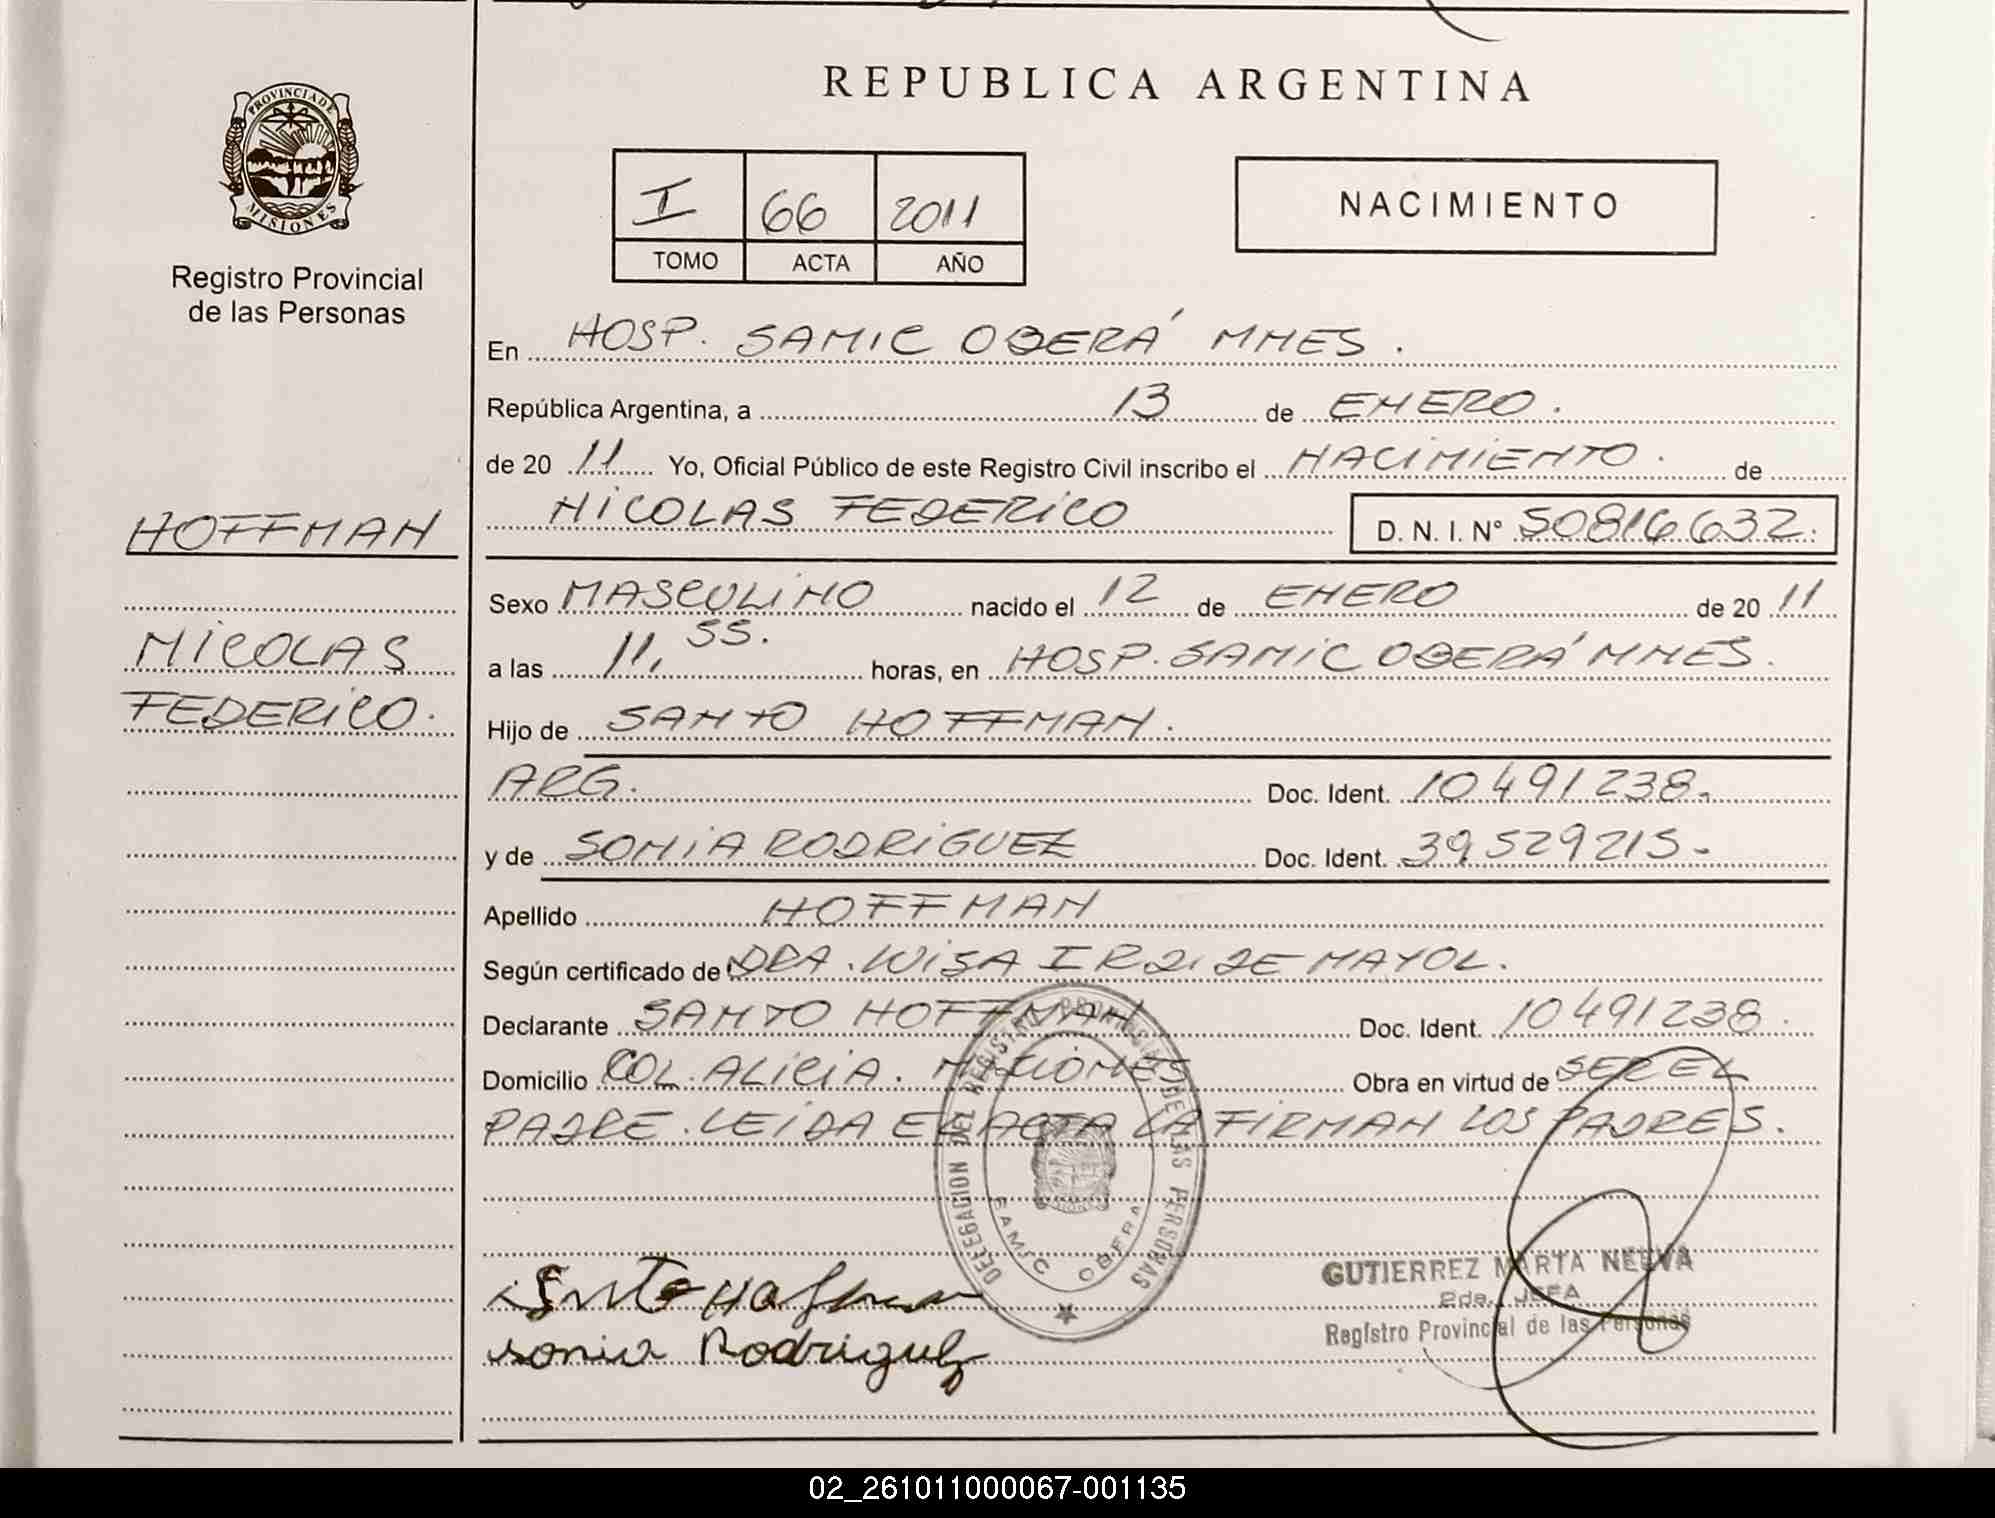 REPUBLICA ARGENTINA
PROVINCIA DE
MISIONES
Registro Provincial
de las Personas
I 66 2011
TOMO ACTA AÑO
NACIMIENTO
En HOSP. SAMIC OBERÁ MNES.
República Argentina, a 13 de ENERO.
de 20 11 Yo, Oficial Público de este Registro Civil inscribo el NACIMIENTO. de
NICOLAS FEDERICO D. N. I. N° 50816632.
HOFFMAN
NICOLAS
FEDERICO.
Sexo MASCULINO nacido el 12 de ENERO de 20 11
a las 11,55. horas, en HOSP. SAMIC OBERÁ MNES.
Hijo de SANTO HOFFMAN.
ARG. Doc. Ident. 10491238.
y de SONIA RODRIGUEZ Doc. Ident. 39529215.
Apellido HOFFMAN
Según certificado de DRA. MAYOL.
Declarante SANTO HOFFMAN Doc. Ident. 10491238.
Domicilio COL. ALICIA. MISIONES Obra en virtud de SER EL
PADRE. LEIDA EL ACTA LA FIRMAN LOS PADRES.
DELEGACION DEL REGISTRO PROVINCIAL DE LAS PERSONAS
SAMIC OBERA
Santo Hoffman
sonia Rodriguez
GUTIERREZ MARTA
2da. JEFA
Registro Provincial de las Personas
02_261011000067-001135